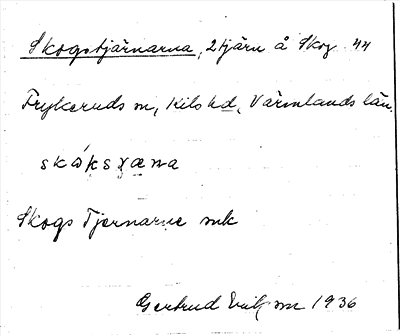 Skogstjärnarna, 2 tjärn å Skog 44
Frykeruds sn, Kils hd, Värmlands län.
Skogs Tjernarne mk
Gertrud 1936